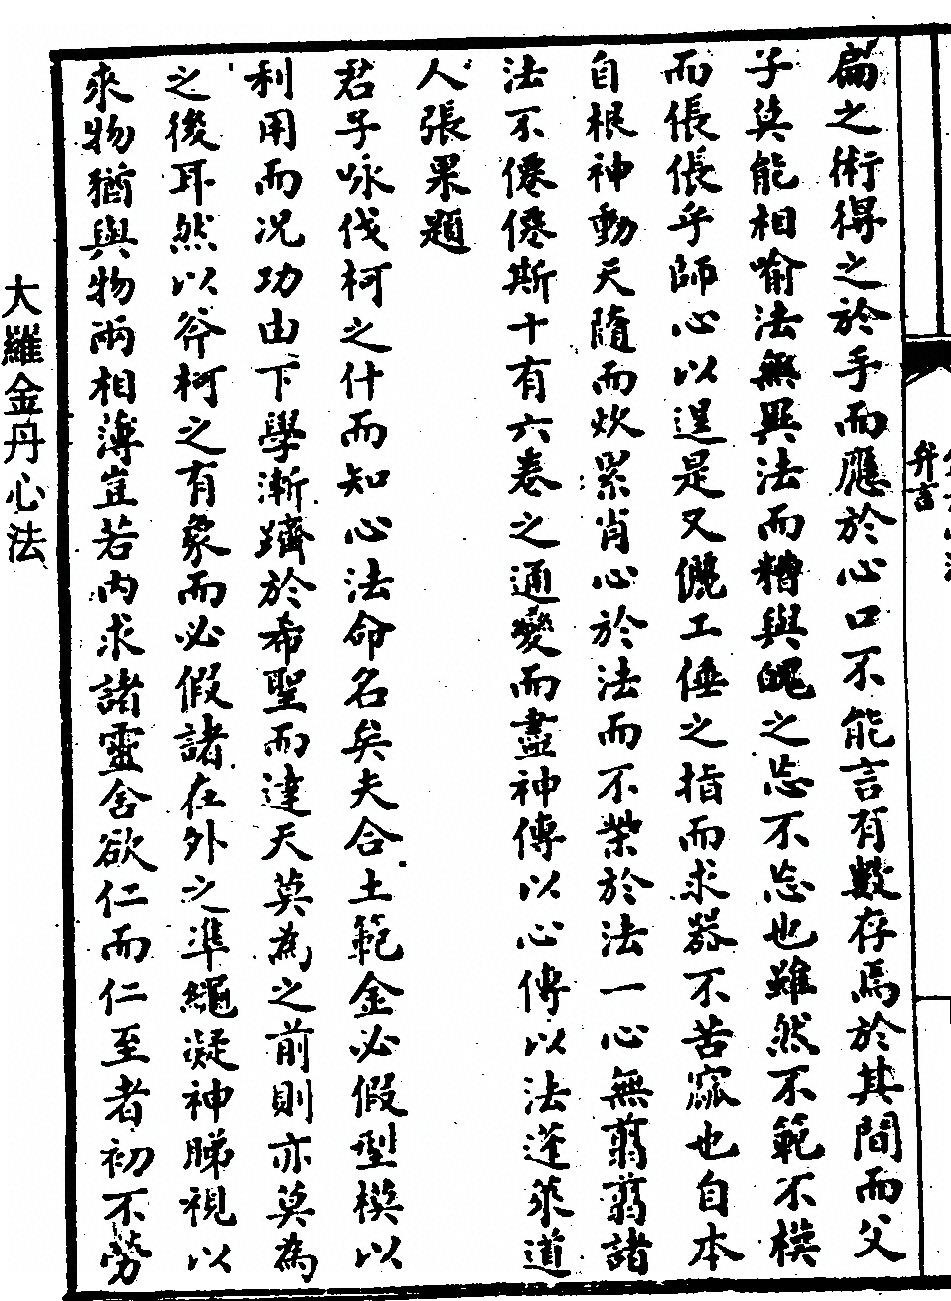 弁言
扁之術得之於手而應於心口不能言有數存焉於其間而父
子莫能相喻法無異法而糟與魄之忘不忘也雖然不範不模
而倀倀乎師心以逞是又儷工倕之指而求器不苦窳也自本
自根神動天隨而炊累肖心於法而不柴於法一心無翦翦諸
法不僊僊斯十有六卷之通變而盡神傳以心傳以法蓬萊道
人張果題
君子咏伐柯之什而知心法命名矣夫合土範金必假型模以
利用而况功由下學漸躋於希聖而達天莫為之前則亦莫為
之後耳然以斧柯之有象而必假諸在外之準繩凝神睇視以
來物猶與物兩相薄豈若內求諸靈舍欲仁而仁至者初不勞
大羅金丹心法